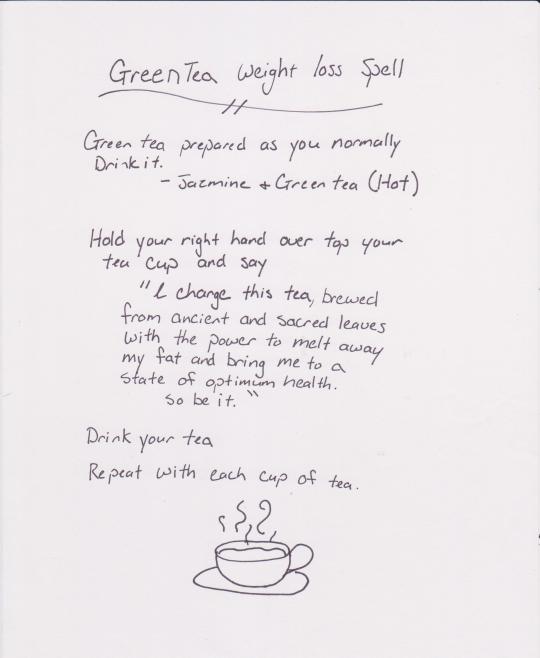 Green Tea Weight loss Spell
Green tea prepared as you normally
Drink it.
- Jazmine + Green tea (Hot)
Hold your right hand over top your
tea cup and say
"I charge this tea, brewed
from ancient and sacred leaves
with the power to melt away
my fat and bring me to a
state of optimum health.
So be it."
Drink your tea
Repeat with each cup of tea.